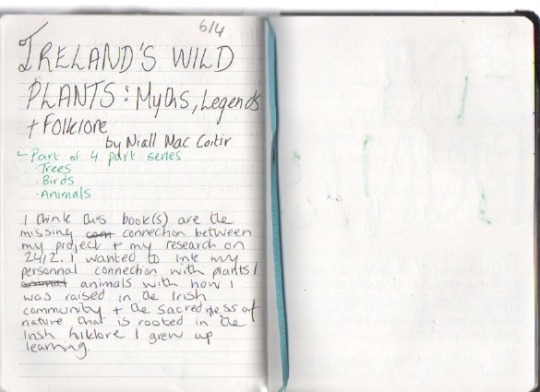 6/4
IRELAND'S WILD
PLANTS: Myths, Legends
+ Folklore
by Niall Mac Coitir
Part of 4 part series
· Trees
· Birds
· Animals
I think this book(s) are the
missing com connection between
my project + my research on
24/2. I wanted to link my
personnal connection with plants/
animal animals with how I
was raised in the Irish
community + the sacredness of
nature that is rooted in the
Irish folklore I grew up
learning.